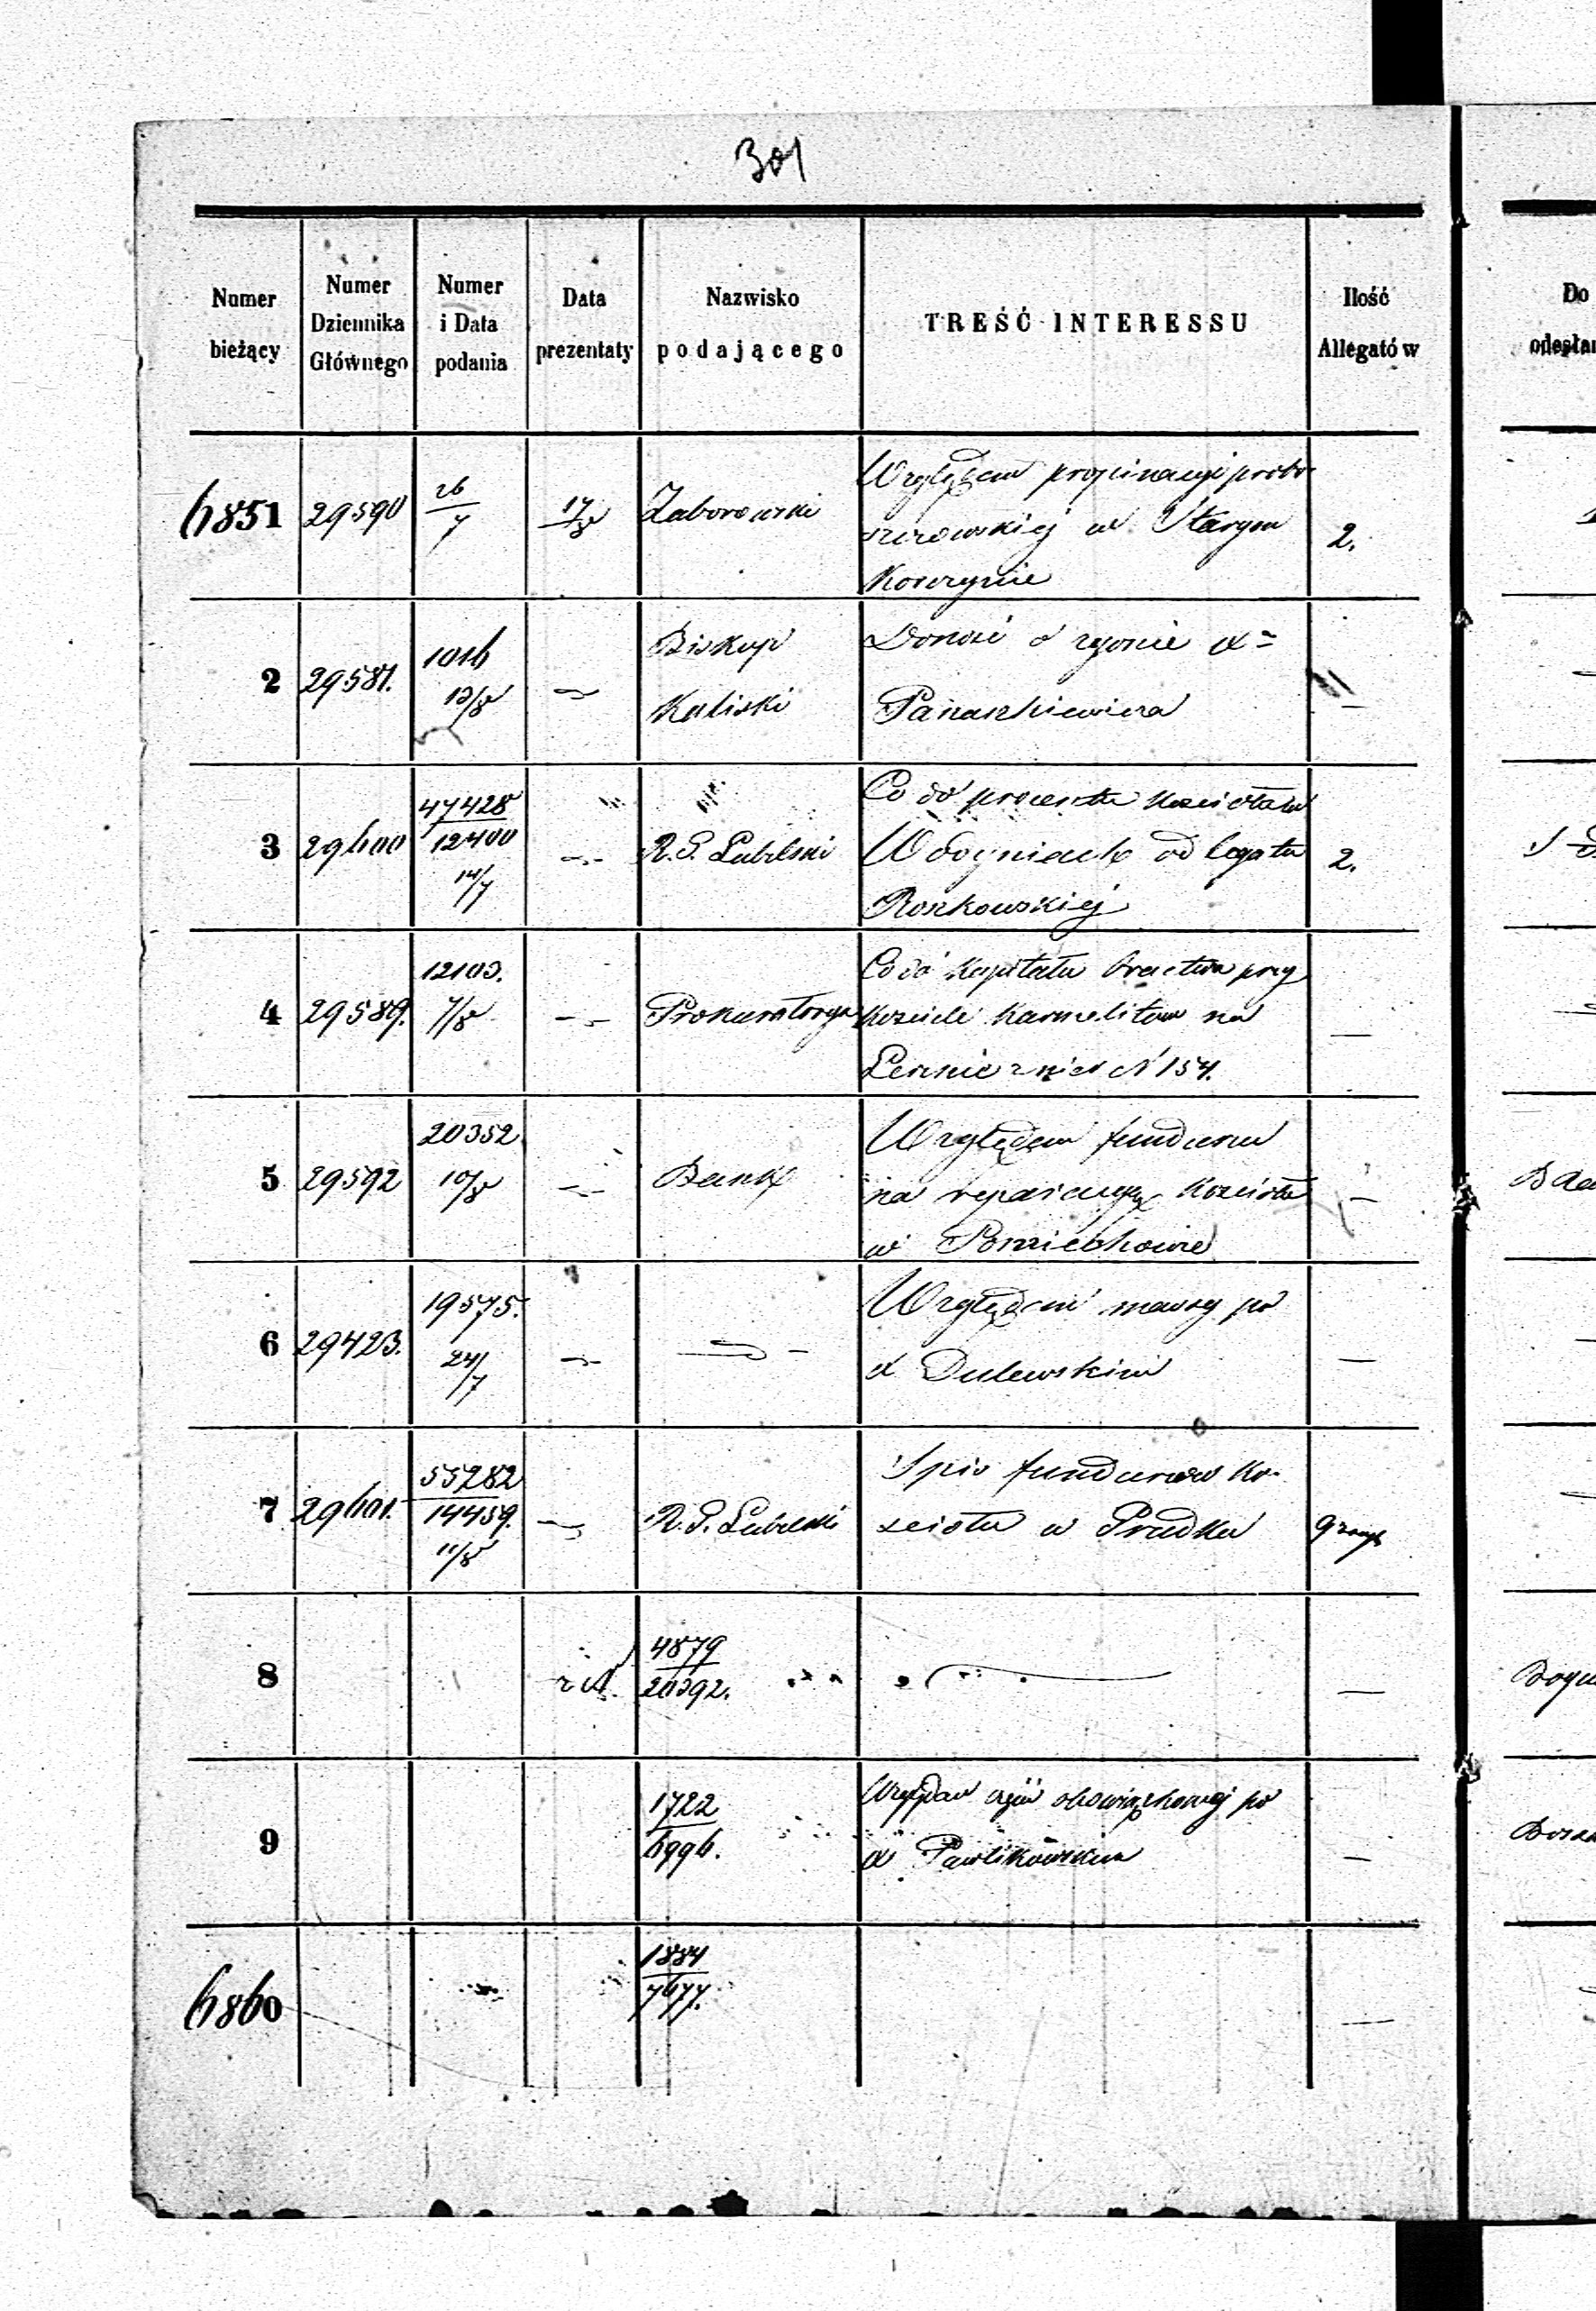 301
Numer bieżący
Numer Dziennika Głównego
Numer i Data podania
Data prezentaty
Nazwisko podającego
TREŚĆ INTERESSU
Ilość Allegatów
Do
6851 29590 26/7 17/8 Zaborowski
Względem propinacyi probo-
szczowskiej w Starym
Korczynie
2.
2 29581. 1016 13/8 Biskup
Kaliski
Donosi o zgonie X
Panaszkiewicza
—
3 29600 47428/12400 14/7 R. G. Lubelski
Co do procentu Kościoła w
Wdoyniach od legatu
Roszkowskiej
2.
4 29589. 12103. 7/8 Prokuratorya
Co do Kapitału Bractwa przy
Kościele Karmelitów na
Lesznie z nier N 154.
—
5 29592 20352 10/8 Bank
Względem funduszu
na reparacyą Kościoła
w Pomiechowie
—
6 29423. 19575. 24/7
Względem massy po
X Dulewskim
—
7 29601. 55282/14459. 11/8 R. G. Lubelski
Spis funduszów Ko-
ścioła w Prudku
9
8 z N 4879/20392.
—
9 1722/6996.
Względem obowiązkowej po
X Pawlikowskim
—
6860 1884/7677.
—